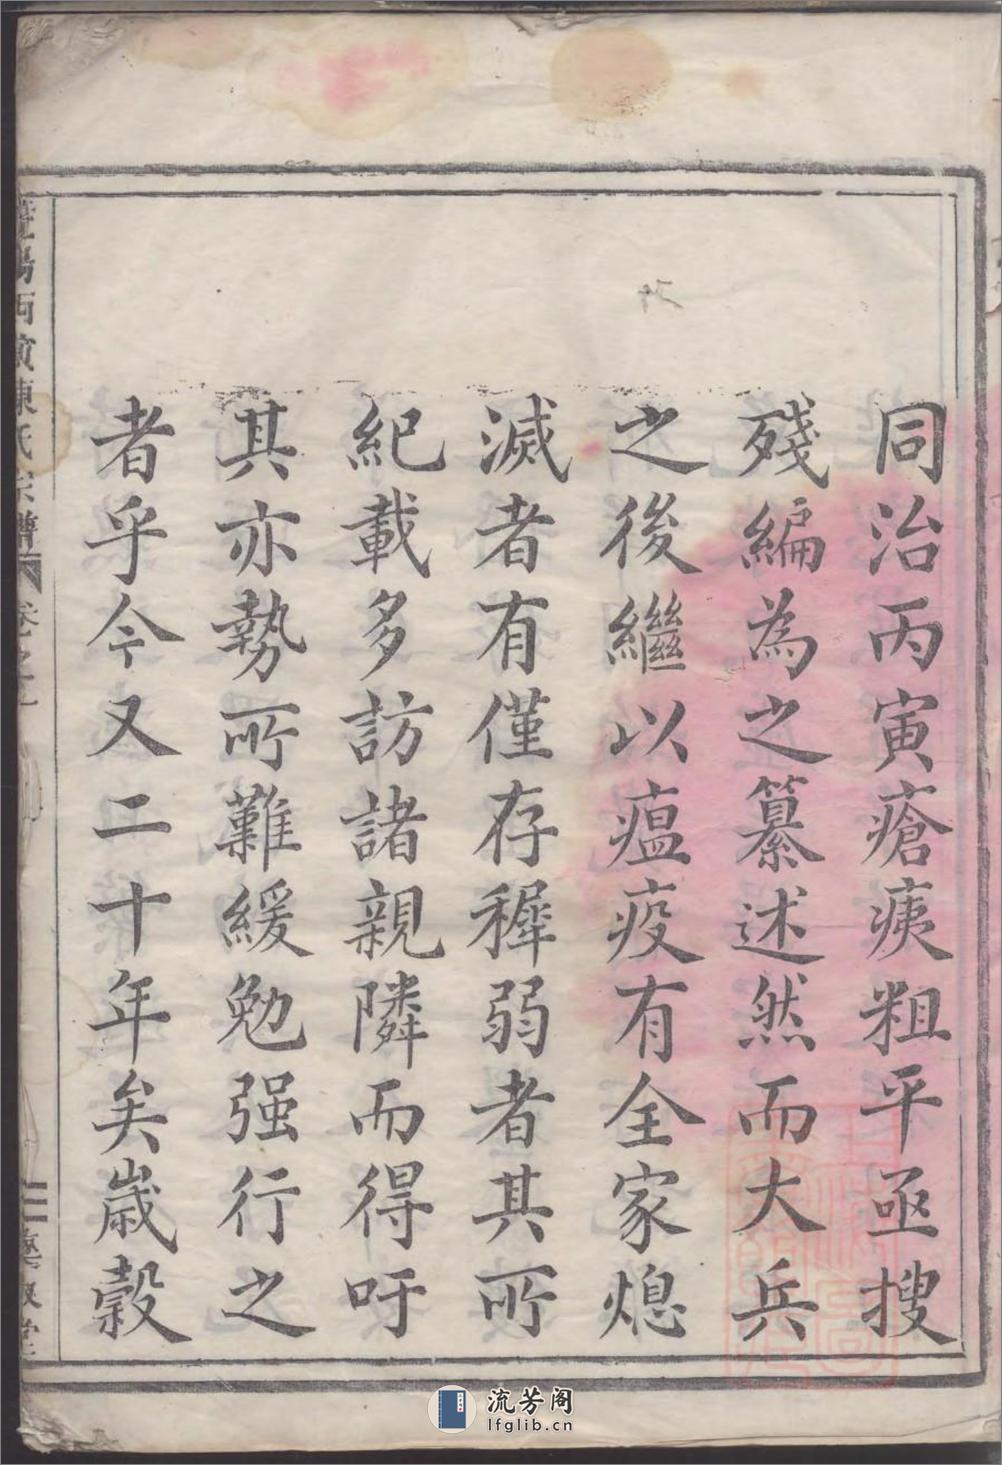 同治丙寅瘡痍粗平亟搜
殘編為之纂述然而大兵
之後繼以瘟疫有全家熄
滅者有僅存穉弱者其所
紀載多訪諸親隣而得吁
其亦勢所難緩勉强行之
者乎今又二十年矣歲穀
陽西濱陳氏宗譜 卷之
流芳阁
lfglib.cn